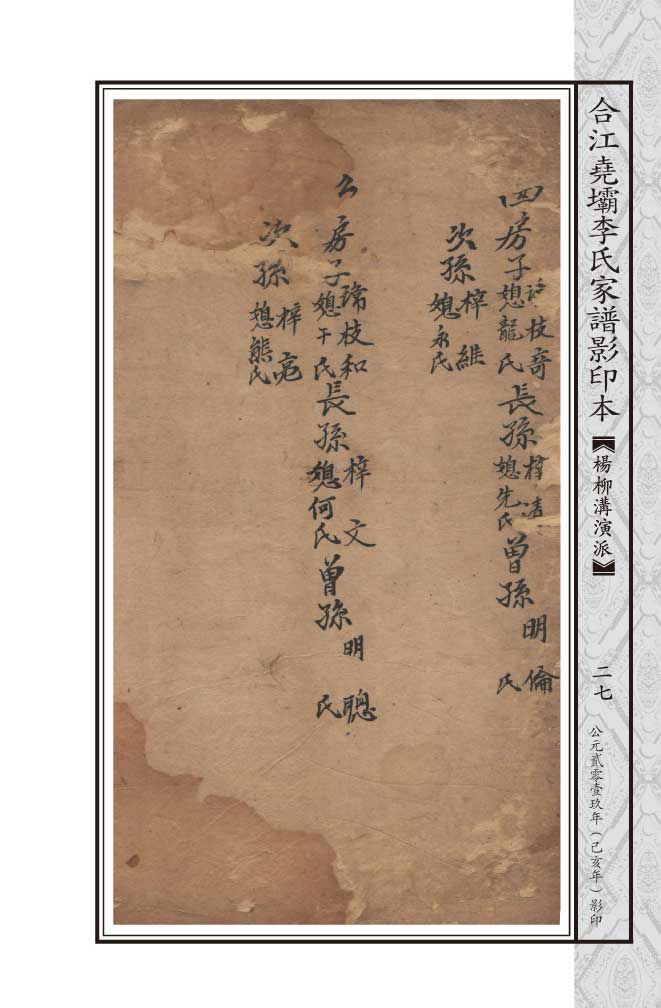 合江堯壩李氏家譜影印本
【楊柳溝演派】
二七
公元貳零壹玖年（己亥年）影印
四房子枝奇 媳龍氏 長孫梓清 媳先氏 曾孫明倫 氏
次孫梓維 媳永氏
么房子瑞枝和 媳于氏 長孫梓文 媳何氏 曾孫明聰 氏
次孫梓亮 媳熊氏